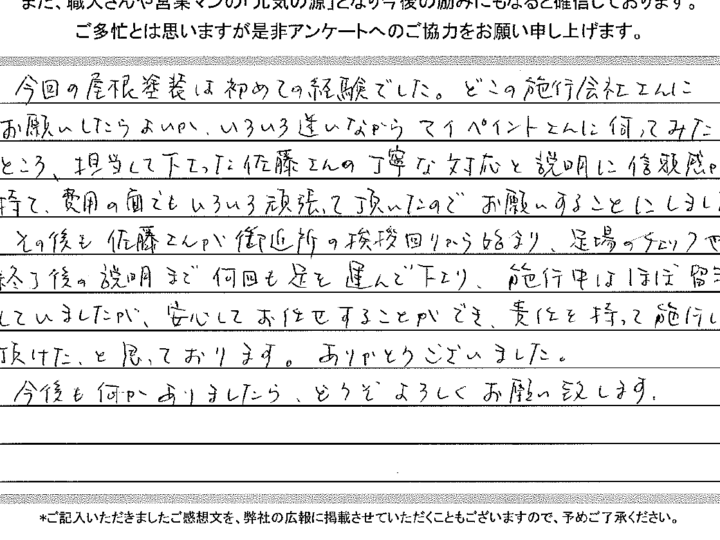 また、職人さんや営業マンの「元気の源」となり今後の励みにもなると確信しております。
ご多忙とは思いますが是非アンケートへのご協力をお願い申し上げます。
今回の屋根塗装は初めての経験でした。どこの施行会社さんに
お願いしたらよいか、いろいろ迷いながらマイペイントさんに伺ってみた
ところ、担当して下さった佐藤さんの丁寧な対応と説明に信頼感が
持て、費用の面でもいろいろ頑張って頂いたのでお願いすることにしまし
その後も佐藤さんが御近所の挨拶回りから始まり、足場のチェックや
終了後の説明まで何回も足を運んで下さり、施行中はほぼ留守
していましたが、安心してお任せすることができ、責任を持って施行し
頂けた、と思っております。ありがとうございました。
今後も何かありましたら、どうぞよろしくお願い致します。
*ご記入いただきましたご感想文を、弊社の広報に掲載させていただくこともございますので、予めご了承ください。